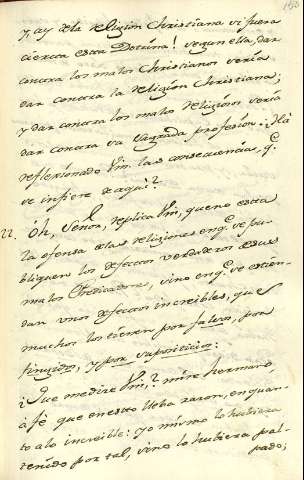 y, ay de la religion Christiana si fuera
cierta esta Doctrina! Segun ella, dar
contra los malos Christianos seria
dar contra la religion Christiana;
y dar contra los malos religiosos seria
dar contra su sagrada profesion. Há
reflexionado Vm. las consecuencias, q.e
se infiere de aqui?
22. Oh, Señor, replica Vm, que no está
la ofensa de las religiones en q.e se pu-
bliquen los defectos verdaderos de sus
malos Predicadores, sino en q.e se estien-
dan unos defectos increibles, que
muchos los tienen por falsos, por
fingidos, y por supositicios:
¿Que me dire Vm,? mire hermano,
á fé que en esto lleba razon, en quan-
to a lo increible: yo mismo lo hubiera
tenido por tal, sino lo hubiera pal-
pado;